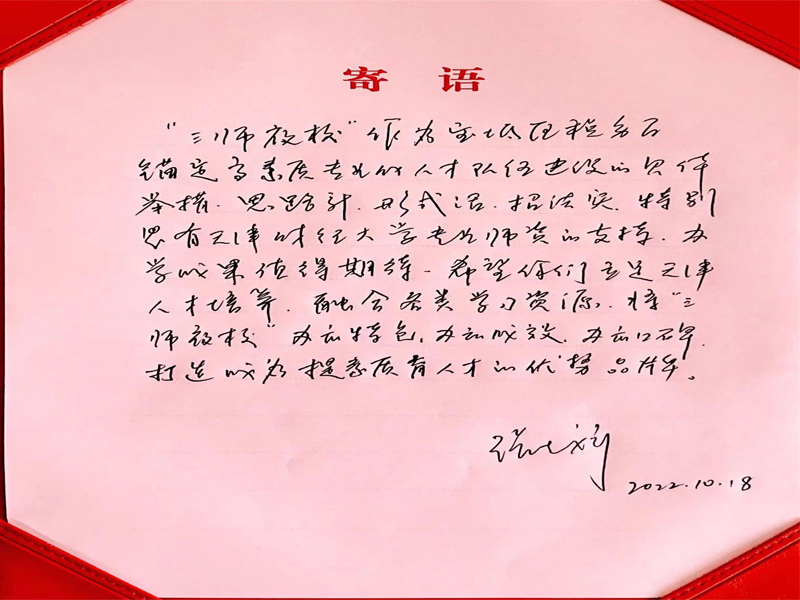 寄 语
“三师夜校”作为宝坻区税务局
锚定高素质专业化人才队伍建设的具体
举措,思路新,形式活,招法实,特别
是有天津财经大学专业师资的支持,办
学成果值得期待。希望你们立足天津
人才培养,融合各类学习资源,将“三
师夜校”办出特色,办出成效,办出口碑,
打造成为提素质育人才的优势品牌。
2022.10.18